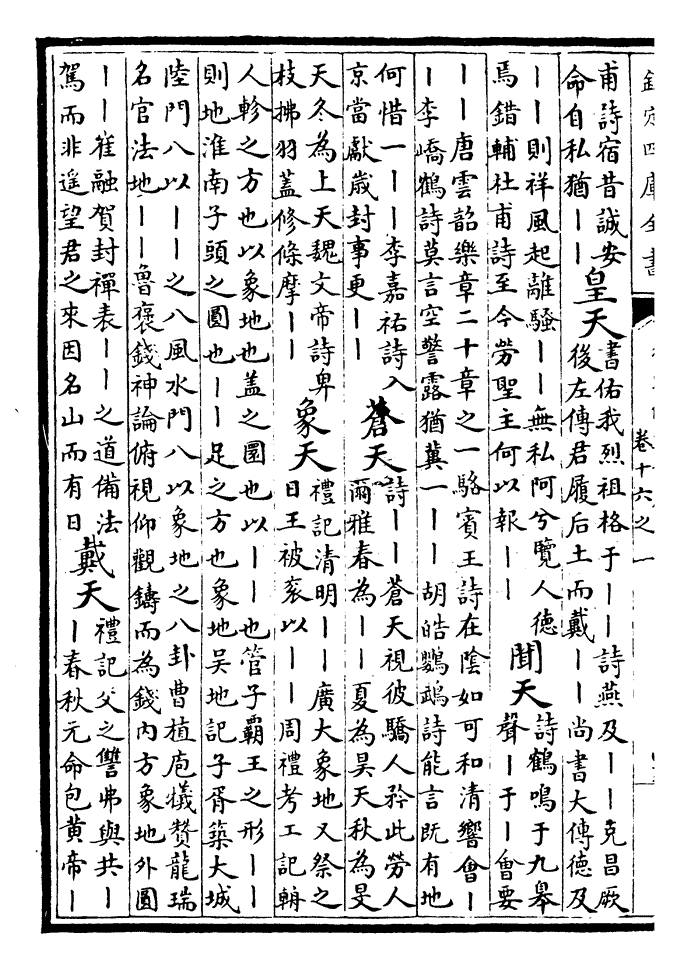 欽定四庫全書
卷十六之一
甫詩宿昔誠安
命自私猶〡〡
皇天
書佑我烈祖格于〡〡詩燕及〡〡克昌厥
後左傳君履后土而戴〡〡尚書大傳德及
〡〡則祥風起離騷〡〡無私阿兮覽人德
焉錯輔杜甫詩至今勞聖主何以報〡〡
聞天
詩鶴鳴于九皋
聲〡于〡會要
〡〡唐雲韶樂章二十章之一駱賓王詩在陰如可和清響會〡
〡李嶠鶴詩莫言空警露猶冀一〡〡胡皓鸚鵡詩能言既有地
何惜一〡〡李嘉祐詩入
京當獻歲封事更〡〡
蒼天
詩〡〡蒼天視彼驕人矜此勞人
爾雅春為〡〡夏為昊天秋為旻
天冬為上天魏文帝詩卑
枝拂羽蓋修條摩〡〡
象天
禮記清明〡〡廣大象地又祭之
日王被衮以〡〡周禮考工記輈
人軫之方也以象地也盖之圜也以〡〡也管子霸王之形〡〡
則地淮南子頭之圓也〡〡足之方也象地吳地記子胥築大城
陸門八以〡〡之八風水門八以象地之八卦曹植庖犧贊龍瑞
名官法地〡〡魯褒錢神論俯視仰觀鑄而為錢内方象地外圓
〡〡崔融賀封禪表〡〡之道備法
駕而非遥望君之來因名山而有日
戴天
禮記父之讐弗與共〡
〡春秋元命包黄帝〡